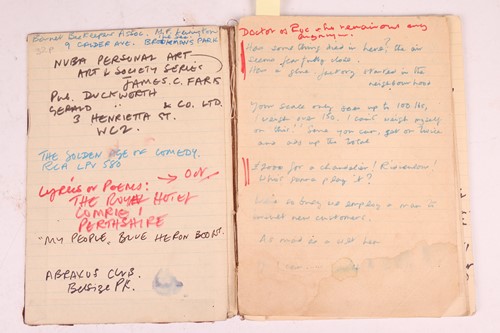 Barnet Beekeepers Assoc. M.P.
9 CALDER AVE. BROOKMANS PARK
NUBA PERSONAL ART
ART & SOCIETY SERIES
JAMES. C. FARIS
Pub. DUCKWORTH
GERALD " & CO. LTD.
3 HENRIETTA ST.
WC2.
THE GOLDEN AGE OF COMEDY.
RCA LPV 580
LYRICS OR POEMS: →
THE ROYAL HOTEL
COMRIE !
PERTHSHIRE
"MY PEOPLE, BLUE HERON BOOKS".
ABRAKUS CLUB.
Belsize PK.
Doctor or Eye
Has something died in here? the air
seems fearfully close.
Has a glue factory started in the
neighbourhood
Your scale only goes up to 100 lbs,
I weigh over 150. I can't weigh myself
on this" Sure you can, get on twice
and add up the total
£2000 for a chandelier! Ridiculous!
Who's gonna play it?
so busy we employ a man to
insult new customers.
As mad as a wet hen